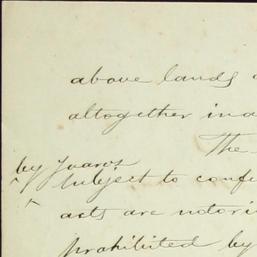 above lands
altogether ind
The
by Juaros
subject to confi
acts are notori
prohibited by